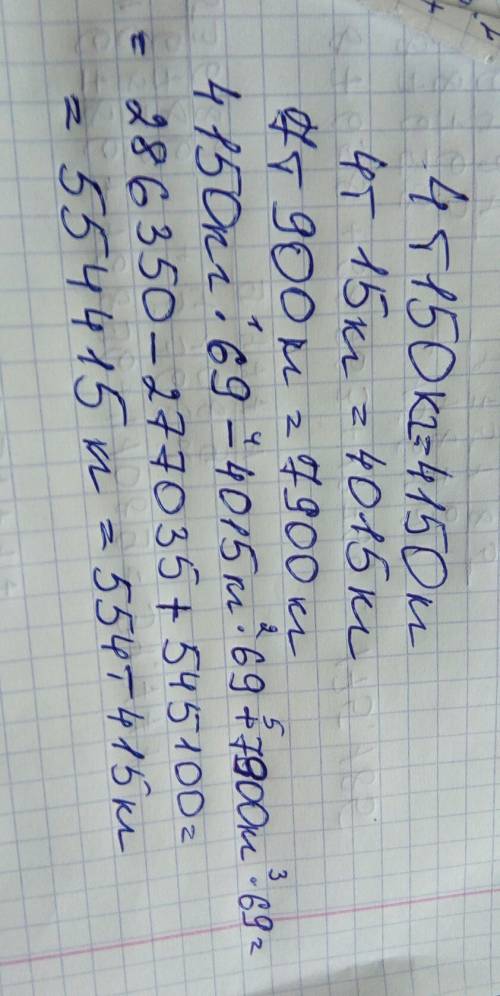 4т 150кг=4150кг
4т 15кг = 4015кг
7т 900кг = 7900кг
4150кг ·¹ 69 –⁴ 4015кг ·² 69 +⁵ 7900кг ·³ 69 =
= 286350 – 277035 + 545100 =
= 554415кг = 554т 415кг